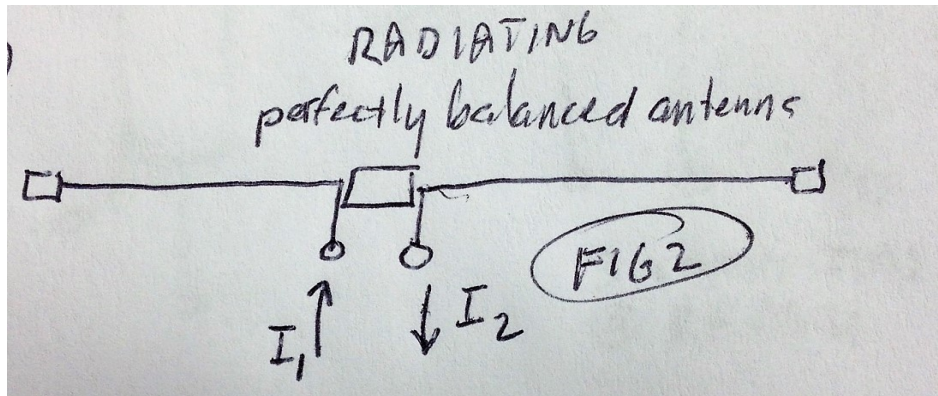 RADIATING
perfectly balanced antenna
FIG 2
I₁
I₂